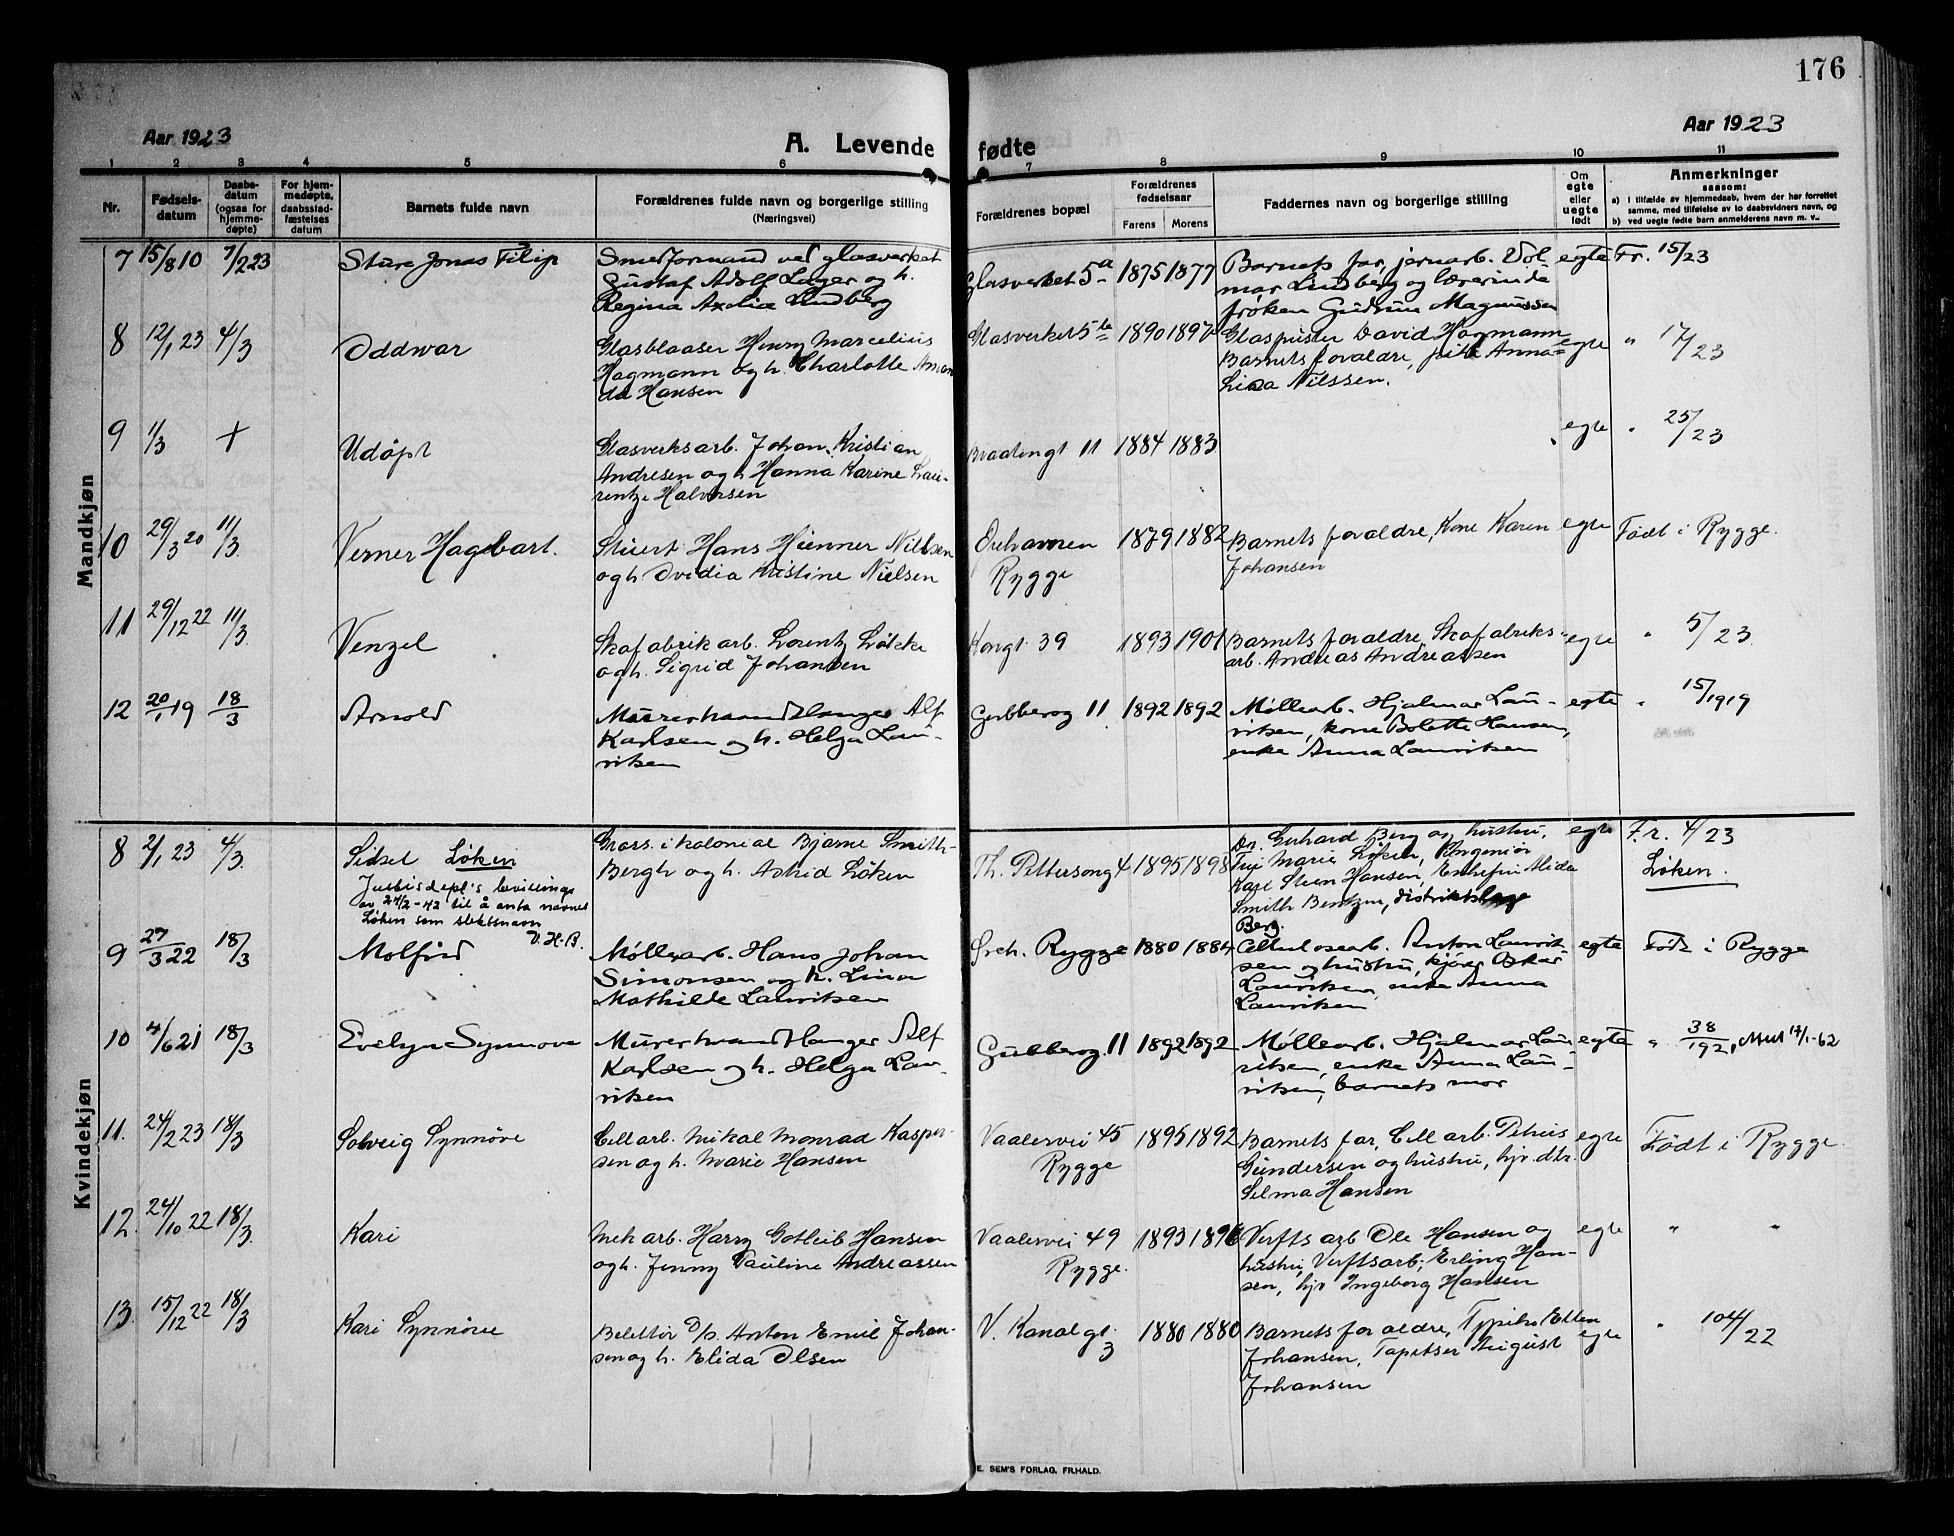 176
Aar 1923
A. Levende fødte
Aar 1923
1 2 3 4 5 6 7 8 9 10 11
Nr.
Fødsels-
datum
Daabs-
datum
(ogsaa for
hjemme-
døpte)
For hjem-
medøpte,
daabsstad-
fæstelses
datum
Barnets fulde navn
Forældrenes fulde navn og borgerlige stilling
(Næringsvei)
Forældrenes bopæl
Forældrenes
fødselsaar
Farens Morens
Faddernes navn og borgerlige stilling
Om
egte
eller
uegte
født
Anmerkninger
saasom:
a) i tilfælde av hjemmedaab, hvem der har forrettet
samme, med tilføielse av to daabsvidners navn, og
b) ved uegte fødte barn anmelderens navn m. v..
Mandkjøn
7 15/8 10 7/2 23 Sture Jonas Filip
Smedformand ved glasverket
Gustaf Adolf Lager og h.
Regina Axelia Lindberg
Glasverket 5a 1875 1877
Barnets far, jernarb. Vol-
mar Lindberg og lærerinde
frøken Gudrun Magnussen
egte Fr. 15/23
8 12/1 23 4/3 Oddvar
Glasblaaser Henry Marcelius
Hagmann og h. Charlotte Aman
da Hansen
Glasverket 5b 1890 1897
Glaspuster David Hagmann
Barnets foraldre, pike Anna
Lina Nilssen.
egte " 17/23
9 1/3 + Udøpt
Glasverksarb. Johan Kristian
Andresen og h Hanna Karine Lau-
rentze Halvorsen
Braatengt 11 1884 1883
egte " 25/23
10 29/3 20 11/3. Verner Hagebart.
Stuert Hans Hienner Nielsen
og h Ovidia Kristine Nielsen
Ørehavnen
Rygge
1879 1882
Barnets foraldre, Kone Karen
Johansen
egte Født i Rygge.
11 29/12 22 11/3. Venzel
Skofabrikarb. Lorentz Løkke
og h. Sigrid Johansen
Kongt 39 1893 1901
Barnets foraldre, Skofabriks-
arb. Andreas Andreassen
egte " 5/23.
12 20/1 19 18/3 Arnold
Murerhaandlanger Alf
Karlsen og h. Helga Lau-
ritsen
Gubberog 11 1892 1892
Møllearb. Hjalmar Lau-
ritsen, kone Bolette Hansen,
enke Anna Lauritsen
egte " 15/1919
Kvindekjøn
8 2/1 23 4/3. Sidsel Løken
Justisdept's bevillings
av 24/2-42 til å anta navnet
Løken som slektsnavn
V.H.B.
Gross. i kolonial Bjarne Smith-
Bergh og h. Astrid Løken
Th. Pettersong 4 1895 1898
Dr. Gerhard Berg og hustru,
Fru Marie Løken, Ingeniør
Karl Steen Hansen, Enkefru Alida
Smith Bentzen, distriktslæge
Berg.
egte Fr. 4/23
Løken.
9 27/3 22 18/3 Molfrid
Møllearb. Hans Johan
Simonsen og h. Lina
Mathilde Lauritsen
Øreh. Rygge 1880 1884
Cellulosearb. Anton Laurit-
sen og hustru, kjører Oskar
Lauritsen, enke Anna
Lauritsen
egte Født i Rygge
10 4/6 21 18/3 Evelyn Synnove
Murerhaandlanger Alf
Karlsen og h. Helga Lau-
ritsen
Gubberog. 11 1892 1892
Møllearb. Hjalmar Lau-
ritsen, enke Anna Lau-
ritsen, barnets mor
egte " 38/1921, Mut 17/1-62
11. 24/2 23 18/3 Solveig Synnøve
Cellarb. Mikal Monrad Kasper-
sen og h. Marie Hansen
Vaalervei 45
Rygge
1895 1892
Barnets far, Cellarb. Petrus
Gundersen og hustru, hjv. dtr.
Selma Hansen
egte Født i Rygge.
12. 24/10 22 18/3. Kari
Mek arb. Harry Gotleib Hansen
og h. Jenny Pauline Andreassen
Vaalervei 49
Rygge.
1893 1896
Verftsarb Ole Hansen og
hustru, Verftsarb. Erling Han-
sen, hjv Ingeborg Hansen
egte " "
13. 15/12 22 18/3 Kari Synnøve
Beletter D/s. Anton Emil Johan-
sen og h. Elida Olsen
V. Kanalgt.
3
1880 1880
Barnets foraldre, Ellen
Johansen, Tapetser August
Johansen
egte " 104/22
E. SEM'S FORLAG, FR.HALD.